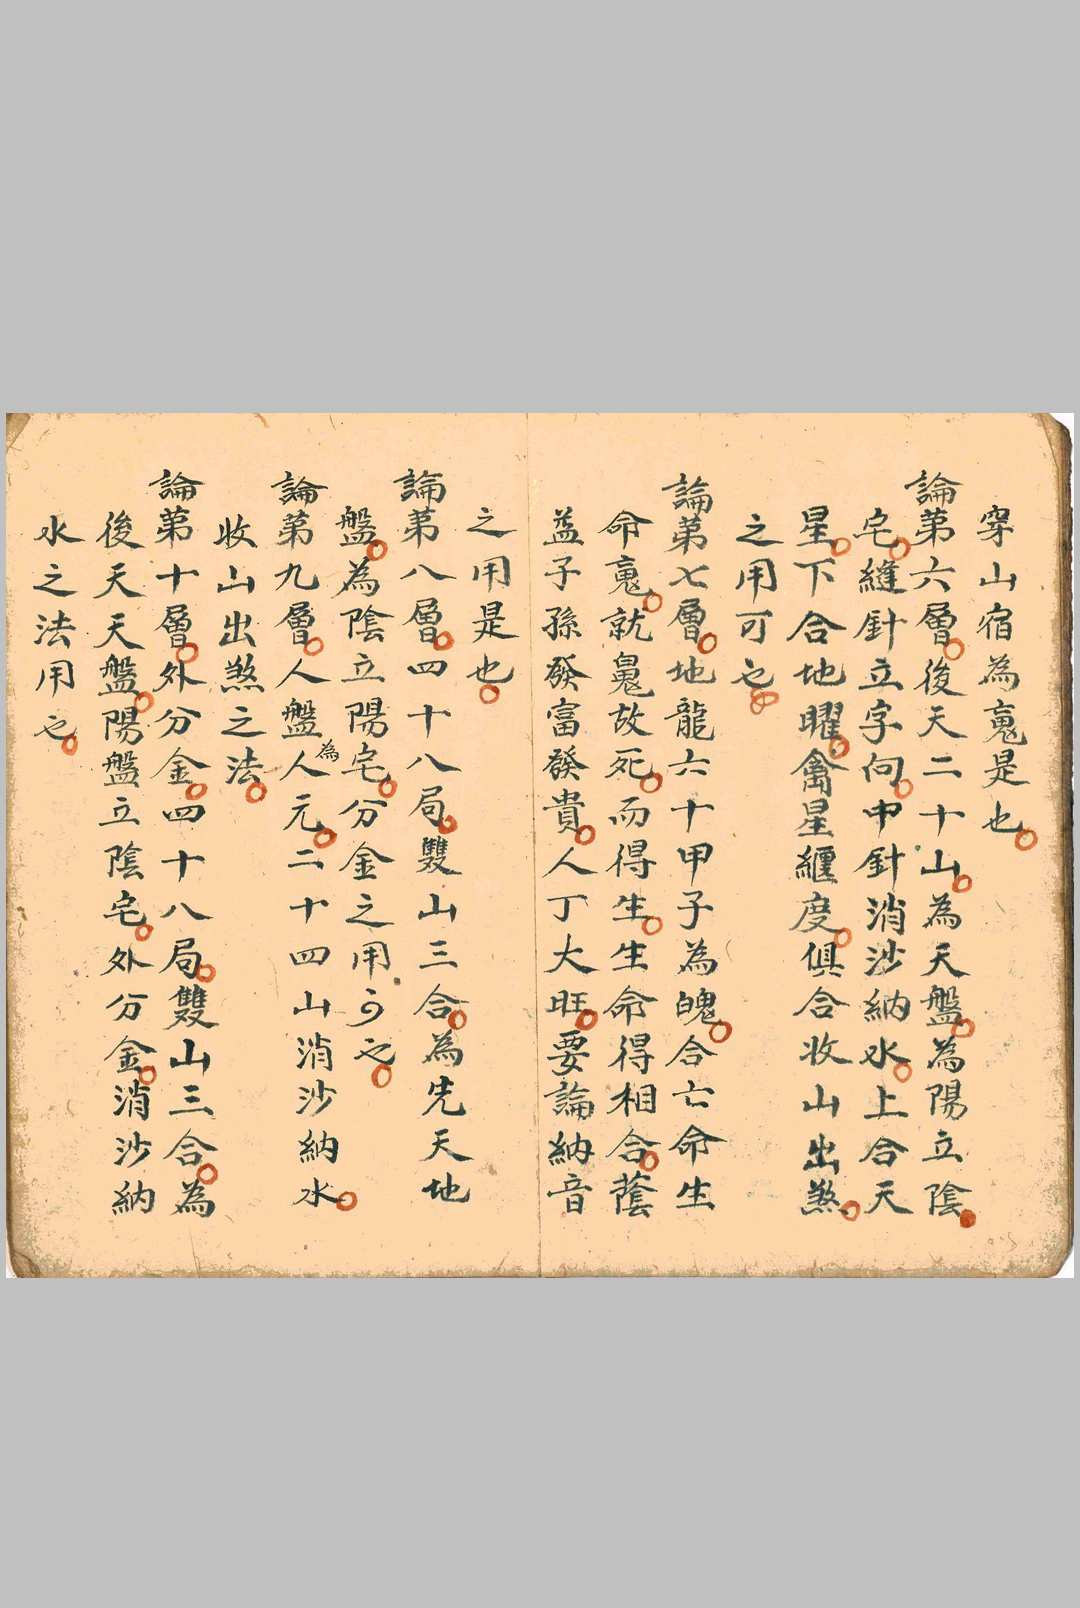 穿山宿為䰟是也
論第六層後天二十山為天盤為陽立陰
宅縫針立字向中針消沙納水上合天
星下合地曜禽星纏度俱合收山出煞
之用可也
論第七層地龍六十甲子為魄合亡命生
命䰟就䰟故死而得生生命得相合蔭
益子孫發富發貴人丁大旺要論納音
之用是也
論第八層四十八局雙山三合為先天地
盤為陰立陽宅分金之用可也
論第九層人盤人為元二十四山消沙納水
收山出煞之法
論第十層外分金四十八局雙山三合為
後天天盤陽盤立陰宅外分金消沙納
水之法用也